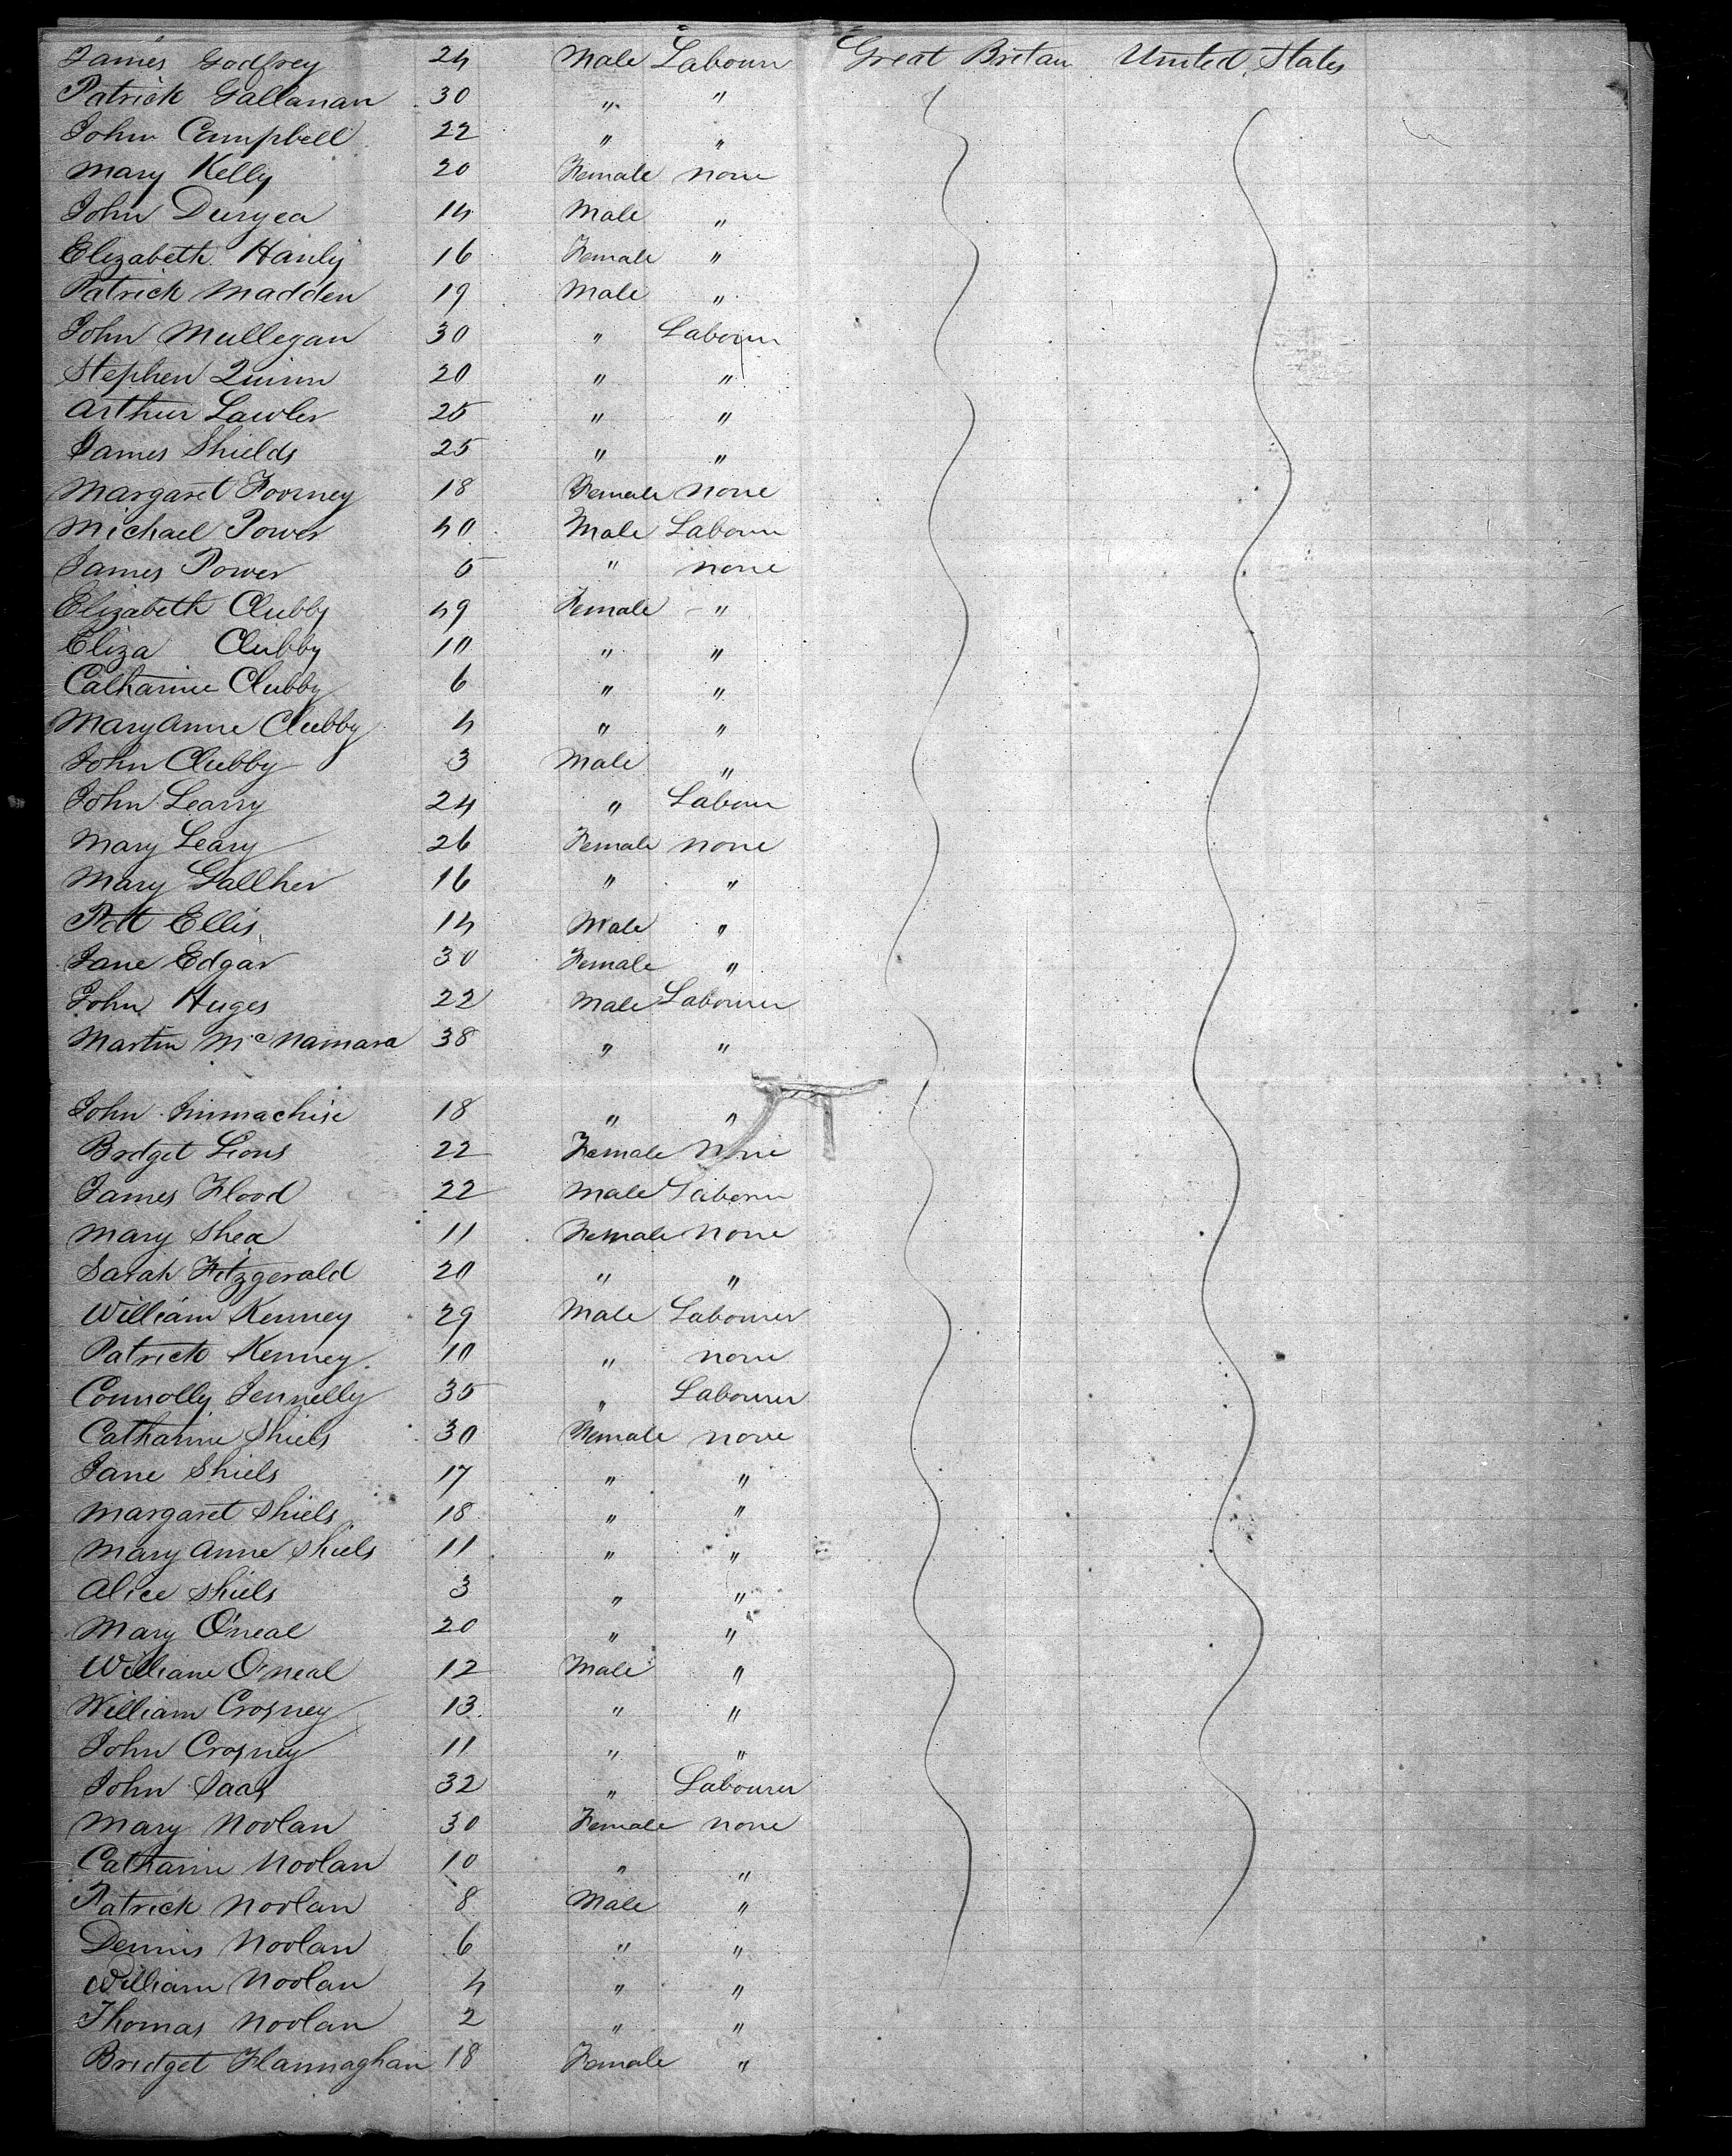 James Godfrey 24 Male Labourr Great Britan United States
Patrick Gallanan 30 " "
John Campbell 22 " "
Mary Kelly 20 Female None
John Duryea 14 Male "
Elizabeth Hanly 16 Female "
Patrick Madden 19 Male "
John Mullegan 30 " Labourr
Stephen Quinn 20 " "
Arthur Lawler 25 " "
James Shields 25 " "
Margaret Foorney 18 Female None
Michael Power 40 Male Labourr
James Power 5 " none
Elizabeth Clubby 49 Female "
Eliza Clubby 10 " "
Catharine Clubby 6 " "
Mary Anne Clubby 4 " "
John Clubby 3 Male "
John Learry 24 " Labour
Mary Leary 26 Female None
Mary Gallher 16 " "
Patt Ellis 14 Male "
Jane Edgar 30 Female "
John Huges 22 Male Labourer
Martin McNamara 38 " "
John 18 " "
Bridget Lions 22 Female None
James Flood 22 Male Labourr
Mary Shea 11 Female None
Sarah Fitzgerald 20 " "
William Kenney 29 Male Labourer
Patrick Kenney 10 " none
Connolly Jennelly 35 " Labourer
Catharine Shiels 30 Female none
Jane Shiels 17 " "
Margaret Shiels 18 " "
Mary Anne Shiels 11 " "
Alice Shiels 3 " "
Mary O'neal 20 " "
William O'neal 12 Male "
William Crosney 13 " "
John Crosney 11 " "
John 32 " Labourer
Mary Noolan 30 Female none
Catharin Noolan 10 " "
Patrick Noolan 8 Male "
Dennis Noolan 6 " "
William Noolan 4 " "
Thomas Noolan 2 " "
Bridget Flannaghan 18 Female "